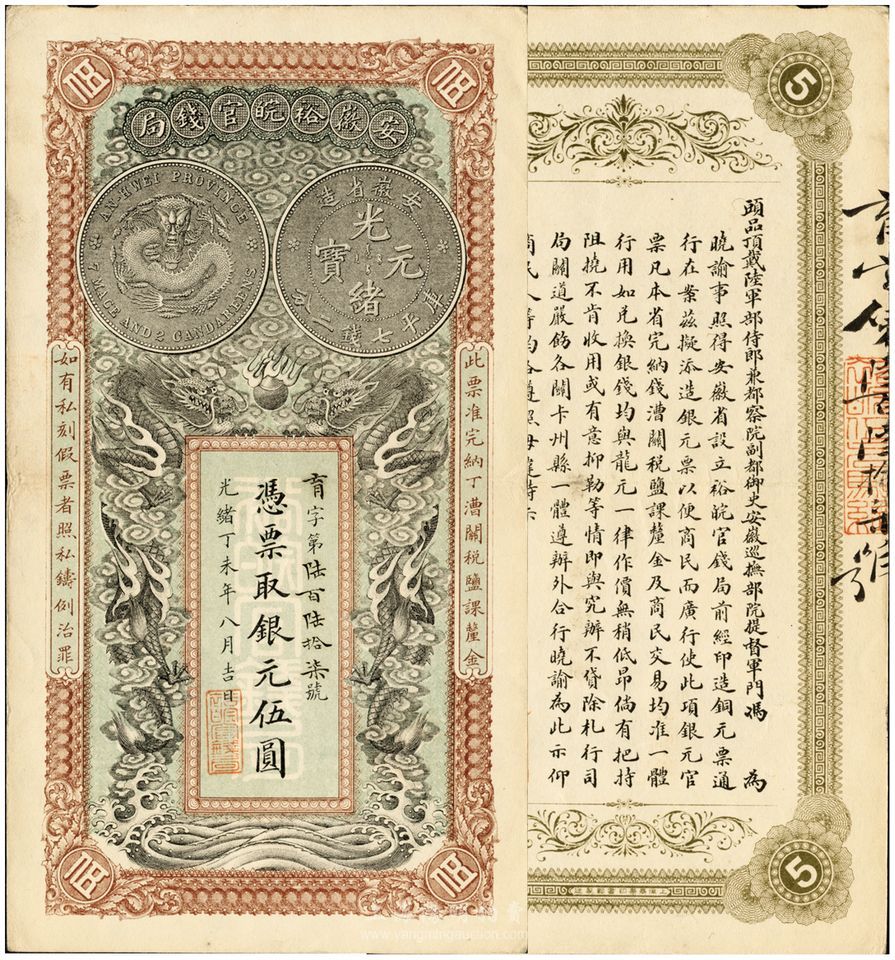 安徽裕皖官錢局
AN-HWEI PROVINCE
7 MACE AND 2 CANDAREENS
安徽省造
光緒元寶
庫平七錢
此票准完納丁漕關稅鹽課釐金
如有私刻假票者照私鑄例治罪
育字第陸百陸拾柒號
憑票取銀元伍圓
光緒丁未年八月吉日
伍
伍
伍
伍
5
5
頭品頂戴陸軍部侍郎兼都察院副都御史安徽巡撫部院提督軍門馮 為
曉諭事照得安徽省設立裕皖官錢局前經印造銅元票通
行在案茲擬添造銀元票以便商民而廣行使此項銀元官
票凡本省完納錢漕關稅鹽課釐金及商民交易均准一體
行用如兌換銀錢均與龍元一律作價無稍低昂倘有把持
阻撓不肯收用或有意抑勒等情即與究辦不貸除札行司
局關道嚴飭各關卡州縣一體遵辦外合行曉諭為此示仰
www.yangmingauction.com